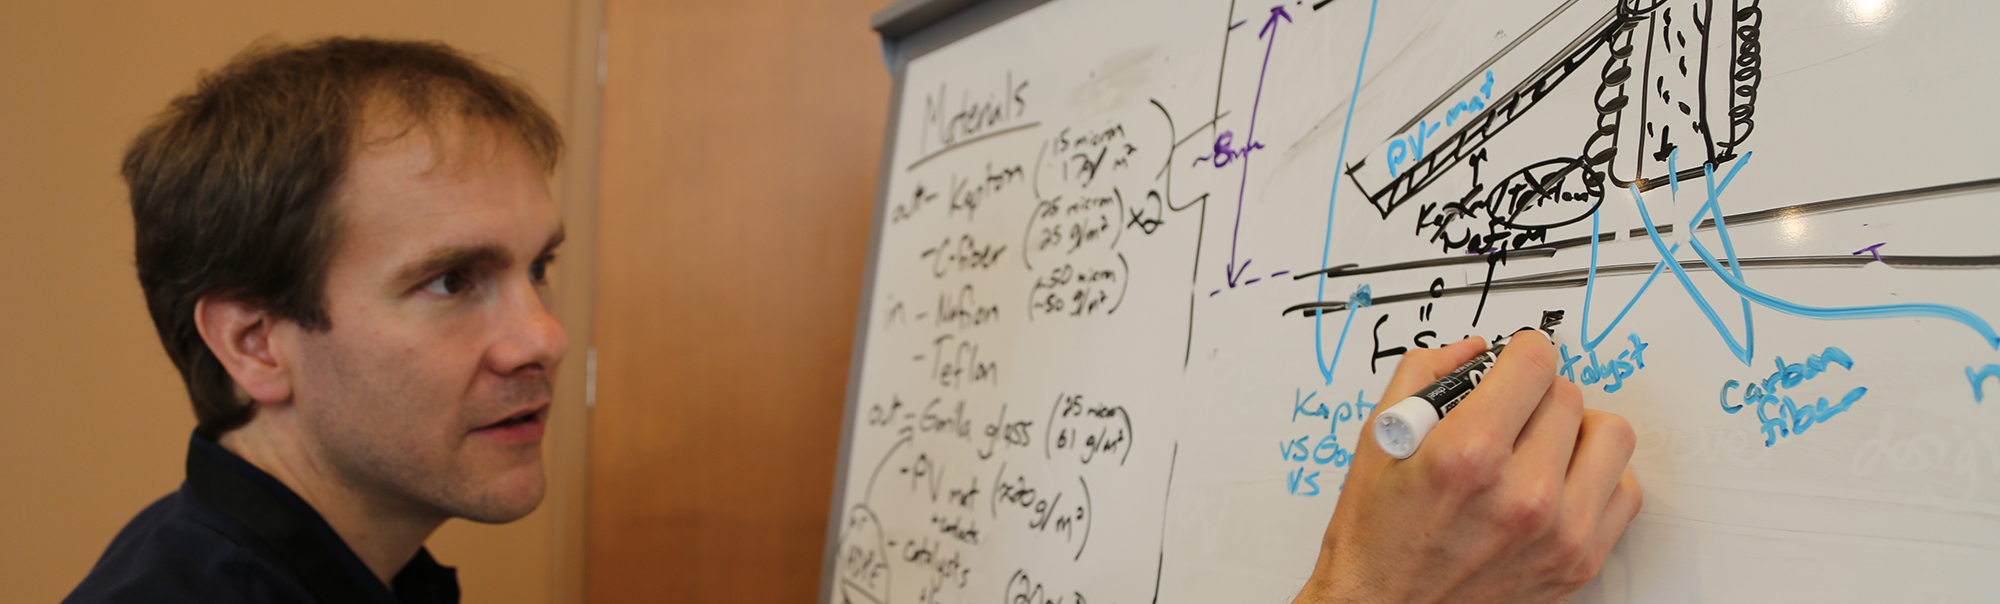 Materials
out - Kapton (15 micron
17g/m²
- C-fiber (25 micron
25 g/m²) x2
in - Nafion (~50 micron
~50 g/m²)
- Teflon
out - Gorilla glass (25 micron
61 g/m²)
- PV mat
g/m²)
+ contacts
- catalysts
~8mm
PV-mat
Teflon
Nafion
talyst
Carbon
fiber
vs
vs